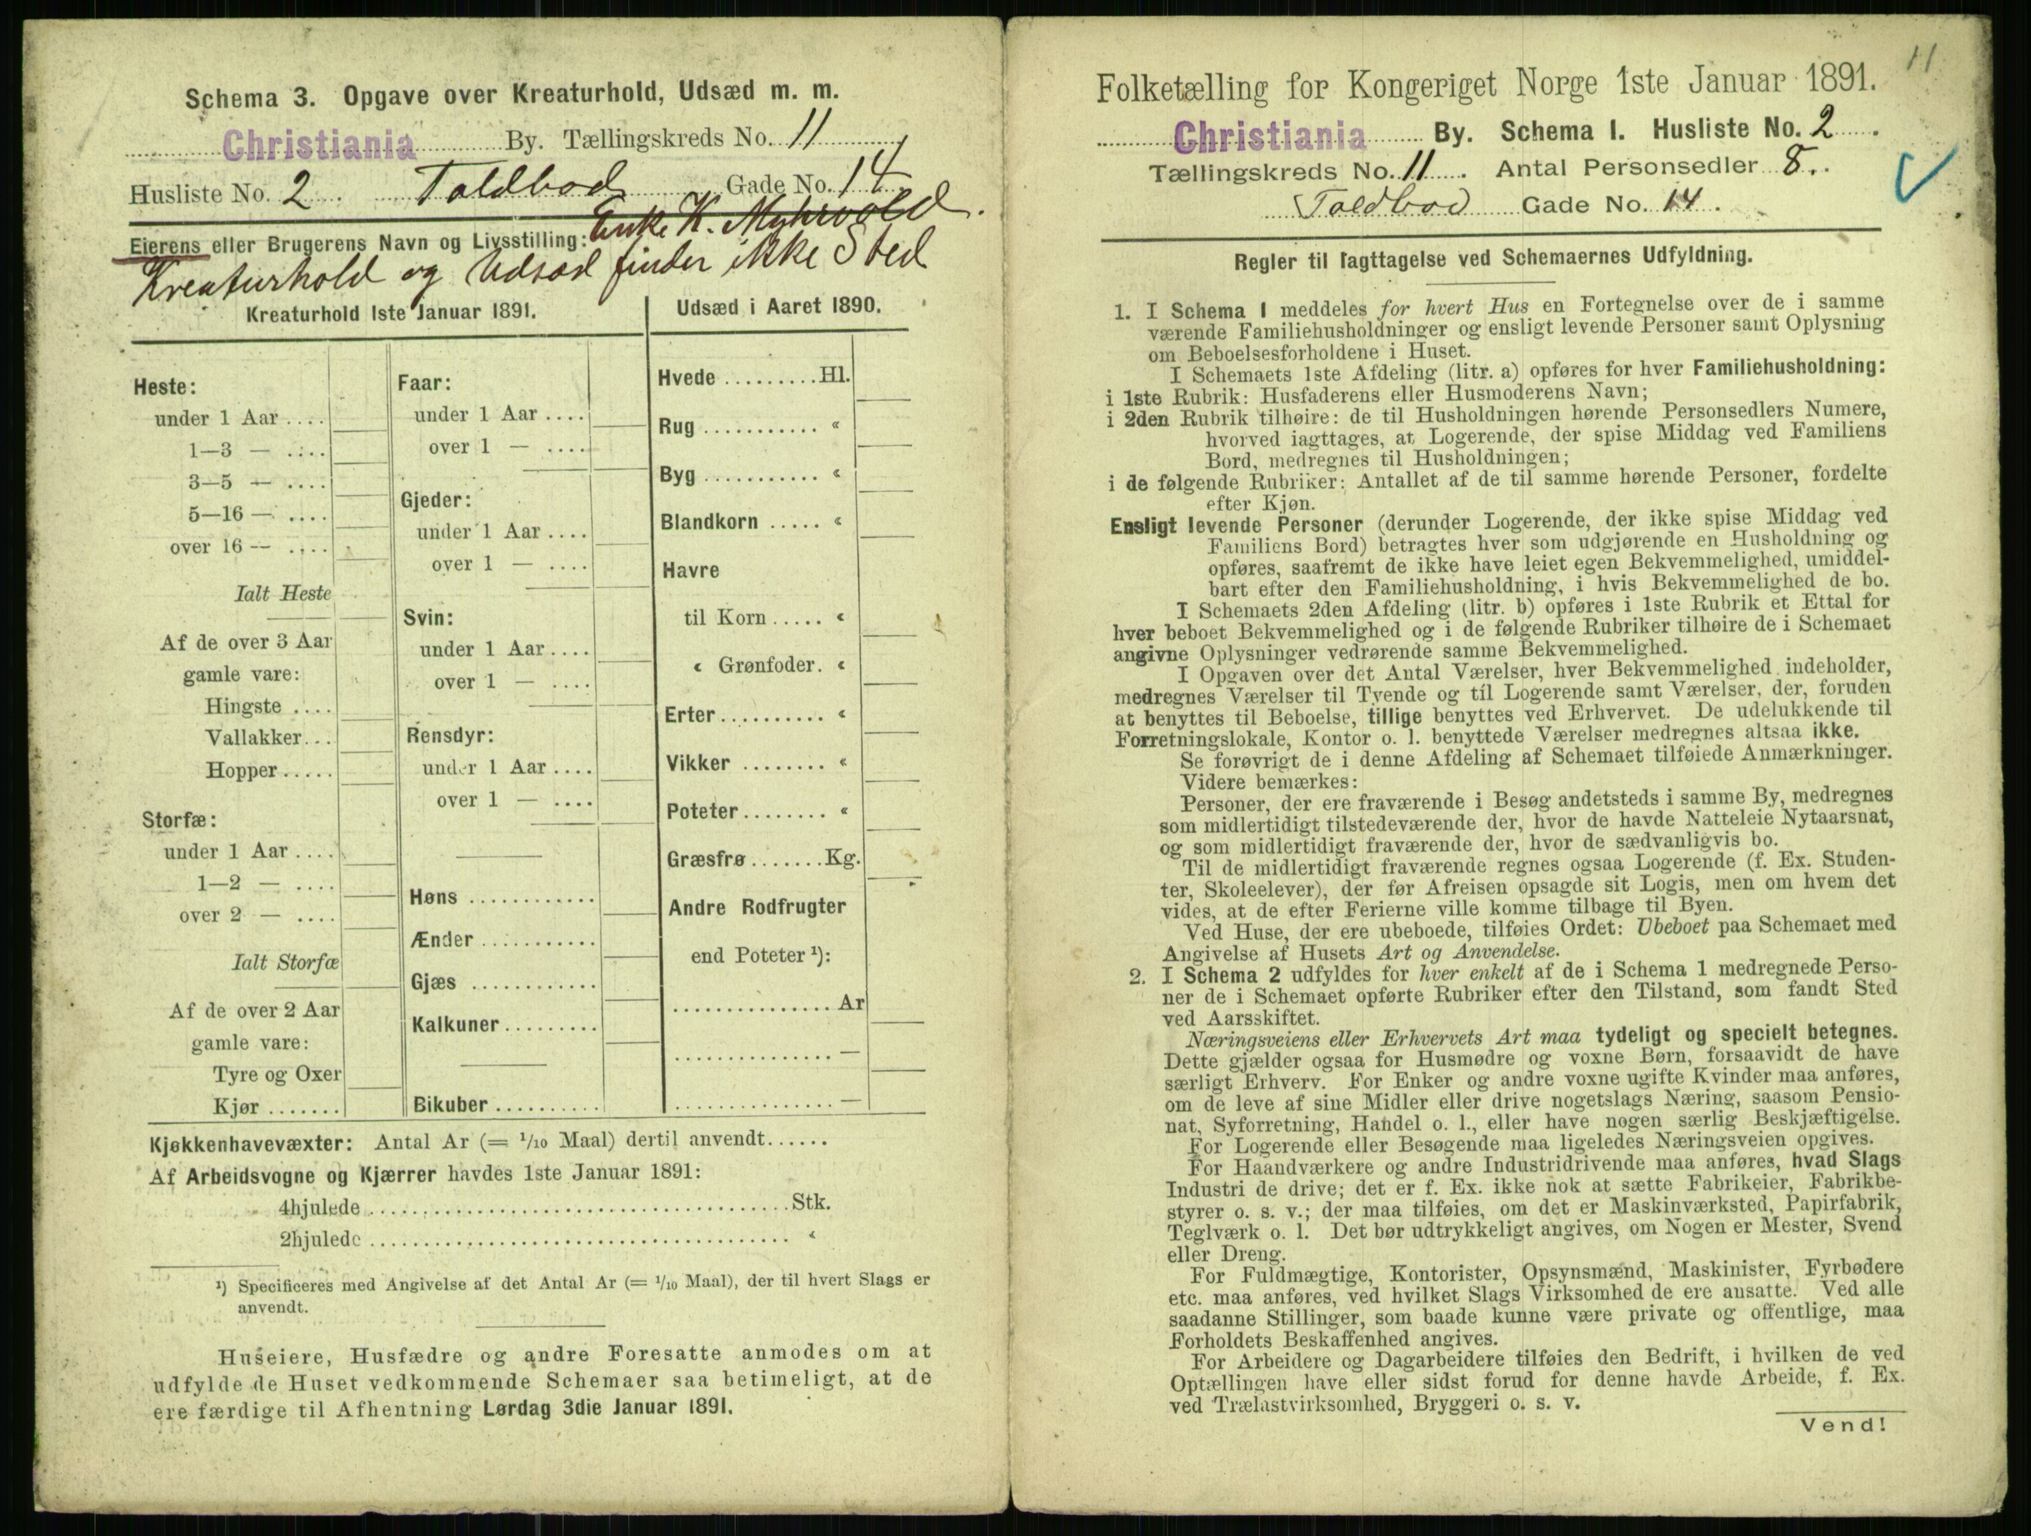 Schema 3. Opgave over Kreaturhold, Udsæd m. m.
Christiania By. Tællingskreds No. 11
Husliste No. 2 Toldbod Gade No. 14
Eierens eller Brugerens Navn og Livsstilling: Enke K. Myhrvold.
Kreaturhold og Udsæd finder ikke Sted
Kreaturhold 1ste Januar 1891.
Heste:
under 1 Aar ....
1—3 — ....
3—5 — ....
5—16 — ....
over 16 — ....
Ialt Heste
Af de over 3 Aar
gamle vare:
Hingste ....
Vallakker...
Hopper.....
Storfæ:
under 1 Aar ....
1—2 — ....
over 2 — ....
Ialt Storfæ
Af de over 2 Aar
gamle vare:
Tyre og Oxer
Kjør .......
Faar:
under 1 Aar ....
over 1 — ....
Gjeder:
under 1 Aar ....
over 1 — ....
Svin:
under 1 Aar ....
over 1 — ....
Rensdyr:
under 1 Aar ....
over 1 — ....
Høns ............
Ænder ...........
Gjæs ............
Kalkuner.........
Bikuber ..........
Udsæd i Aaret 1890.
Hvede .........Hl.
Rug ........... «
Byg ........... «
Blandkorn ..... «
Havre
til Korn ..... «
« Grønfoder. «
Erter.......... «
Vikker ........ «
Poteter........ «
Græsfrø .......Kg.
Andre Rodfrugter
end Poteter ¹):
............... Ar
............... —
............... —
Kjøkkenhavevæxter: Antal Ar (= 1/10 Maal) dertil anvendt......
Af Arbeidsvogne og Kjærrer havdes 1ste Januar 1891:
4hjulede ......................................Stk.
2hjulede ...................................... «
¹) Specificeres med Angivelse af det Antal Ar (= 1/10 Maal), der til hvert Slags er
anvendt.
Huseiere, Husfædre og andre Foresatte anmodes om at
udfylde de Huset vedkommende Schemaer saa betimeligt, at de
ere færdige til Afhentning Lørdag 3die Januar 1891.
11
Folketælling for Kongeriget Norge 1ste Januar 1891.
Christiania By. Schema 1. Husliste No. 2
Tællingskreds No. 11 Antal Personsedler 8.
Toldbod Gade No. 14
Regler til Iagttagelse ved Schemaernes Udfyldning.
1. I Schema 1 meddeles for hvert Hus en Fortegnelse over de i samme
værende Familiehusholdninger og ensligt levende Personer samt Oplysning
om Beboelsesforholdene i Huset.
I Schemaets 1ste Afdeling (litr. a) opføres for hver Familiehusholdning:
i 1ste Rubrik: Husfaderens eller Husmoderens Navn;
i 2den Rubrik tilhøire: de til Husholdningen hørende Personsedlers Numere,
hvorved iagttages, at Logerende, der spise Middag ved Familiens
Bord, medregnes til Husholdningen;
i de følgende Rubriker: Antallet af de til samme hørende Personer, fordelte
efter Kjøn.
Ensligt levende Personer (derunder Logerende, der ikke spise Middag ved
Familiens Bord) betragtes hver som udgjørende en Husholdning og
opføres, saafremt de ikke have leiet egen Bekvemmelighed, umiddel-
bart efter den Familiehusholdning, i hvis Bekvemmelighed de bo.
I Schemaets 2den Afdeling (litr. b) opføres i 1ste Rubrik et Ettal for
hver beboet Bekvemmelighed og i de følgende Rubriker tilhøire de i Schemaet
angivne Oplysninger vedrørende samme Bekvemmelighed.
I Opgaven over det Antal Værelser, hver Bekvemmelighed indeholder,
medregnes Værelser til Tyende og til Logerende samt Værelser, der, foruden
at benyttes til Beboelse, tillige benyttes ved Erhvervet. De udelukkende til
Forretningslokale, Kontor o. l. benyttede Værelser medregnes altsaa ikke.
Se forøvrigt de i denne Afdeling af Schemaet tilføiede Anmærkninger.
Videre bemærkes:
Personer, der ere fraværende i Besøg andetsteds i samme By, medregnes
som midlertidigt tilstedeværende der, hvor de havde Natteleie Nytaarsnat,
og som midlertidigt fraværende der, hvor de sædvanligvis bo.
Til de midlertidigt fraværende regnes ogsaa Logerende (f. Ex. Studen-
ter, Skoleelever), der før Afreisen opsagde sit Logis, men om hvem det
vides, at de efter Ferierne ville komme tilbage til Byen.
Ved Huse, der ere ubeboede, tilføies Ordet: Ubeboet paa Schemaet med
Angivelse af Husets Art og Anvendelse.
2. I Schema 2 udfyldes for hver enkelt af de i Schema 1 medregnede Perso-
ner de i Schemaet opførte Rubriker efter den Tilstand, som fandt Sted
ved Aarsskiftet.
Næringsveiens eller Erhvervets Art maa tydeligt og specielt betegnes.
Dette gjælder ogsaa for Husmødre og voxne Børn, forsaavidt de have
særligt Erhverv. For Enker og andre voxne ugifte Kvinder maa anføres,
om de leve af sine Midler eller drive nogetslags Næring, saasom Pensio-
nat, Syforretning, Handel o. l., eller have nogen særlig Beskjæftigelse.
For Logerende eller Besøgende maa ligeledes Næringsveien opgives.
For Haandværkere og andre Industridrivende maa anføres, hvad Slags
Industri de drive; det er f. Ex. ikke nok at sætte Fabrikeier, Fabrikbe-
styrer o. s. v.; der maa tilføies, om det er Maskinværksted, Papirfabrik,
Teglværk o. l. Det bør udtrykkeligt angives, om Nogen er Mester, Svend
eller Dreng.
For Fuldmægtige, Kontorister, Opsynsmænd, Maskinister, Fyrbødere
etc. maa anføres, ved hvilket Slags Virksomhed de ere ansatte. Ved alle
saadanne Stillinger, som baade kunne være private og offentlige, maa
Forholdets Beskaffenhed angives.
For Arbeidere og Dagarbeidere tilføies den Bedrift, i hvilken de ved
Optællingen have eller sidst forud for denne havde Arbeide, f. Ex.
ved Trælastvirksomhed, Bryggeri o. s. v.
Vend!